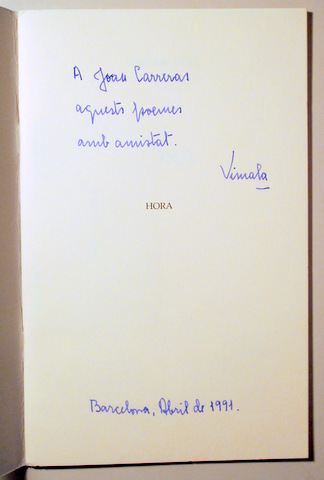 A Joan Carreras
aquests poemes
amb amistat.
Vimala
HORA
Barcelona, Abril de 1991.